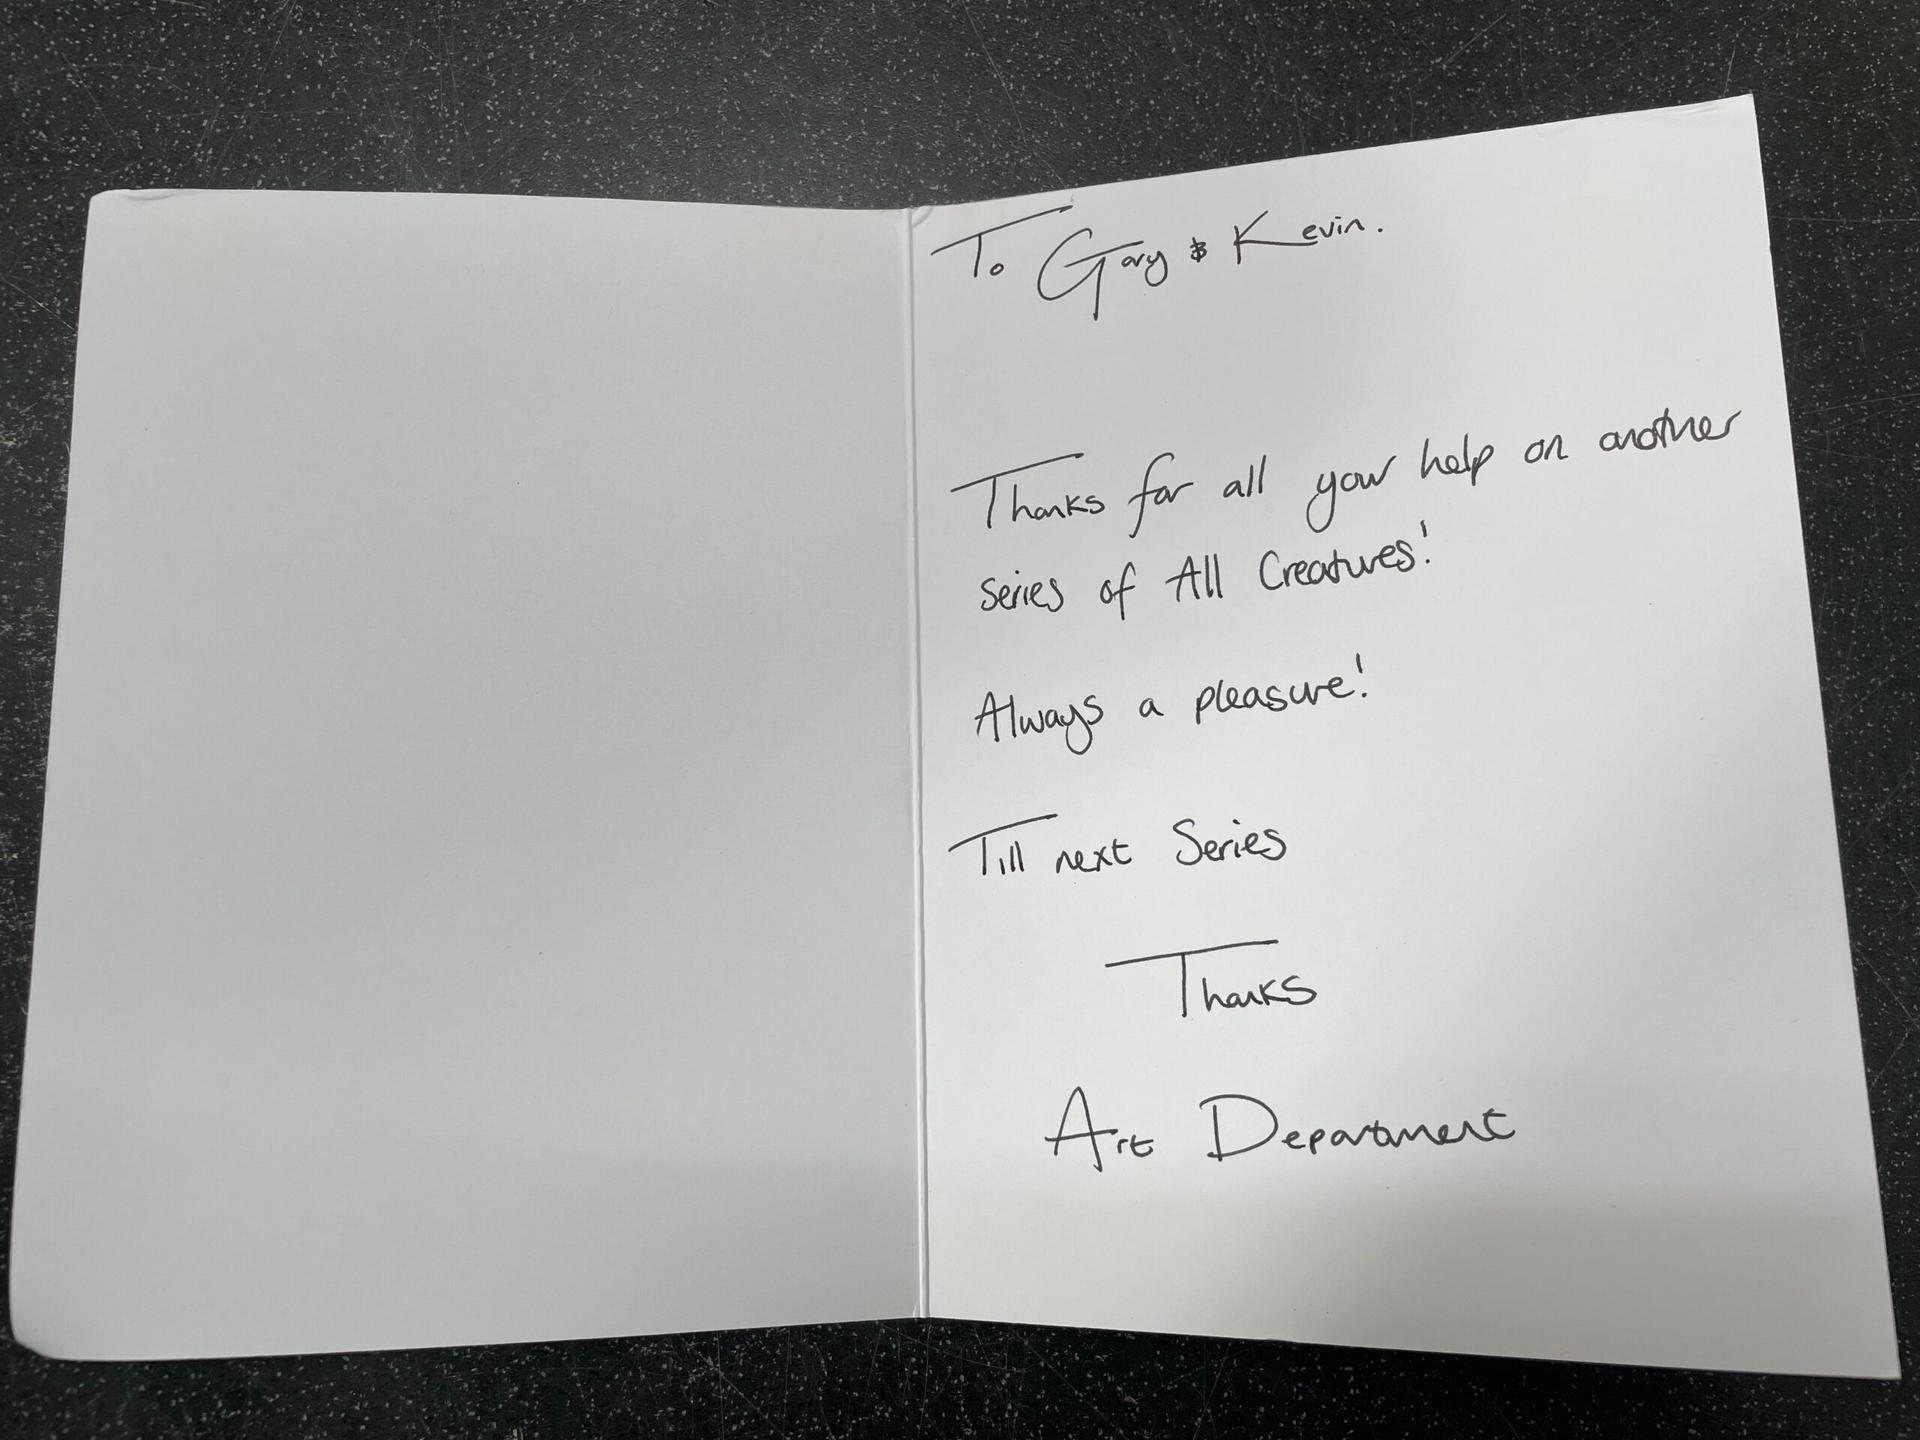 To Gary & Kevin.
Thanks for all your help on another
series of All Creatures!
Always a pleasure!
Till next Series
Thanks
Art Department